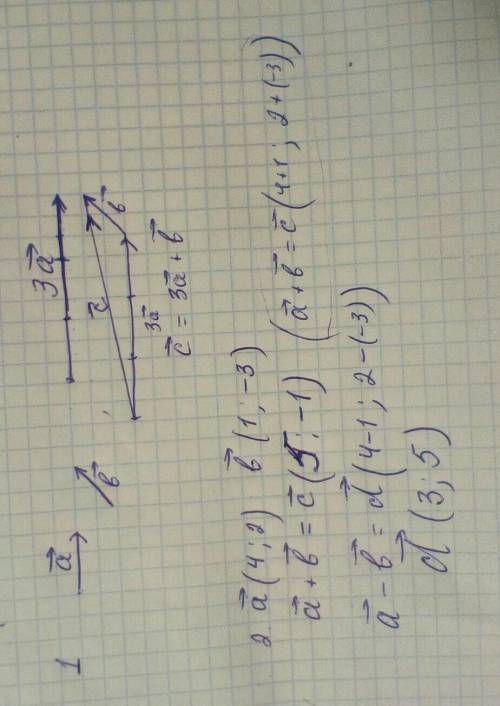 1 a⃗ b⃗ 3a⃗
c⃗ b⃗
3a⃗
c⃗ = 3a⃗ + b⃗
2 a⃗ (4 ; 2) b⃗ (1 ; -3)
a⃗ + b⃗ = c⃗ (5 ; -1) (a⃗ + b⃗ = c⃗ (4+1 ; 2+(-3))
a⃗ - b⃗ = d⃗ (4-1 ; 2-(-3))
d⃗ (3 ; 5)